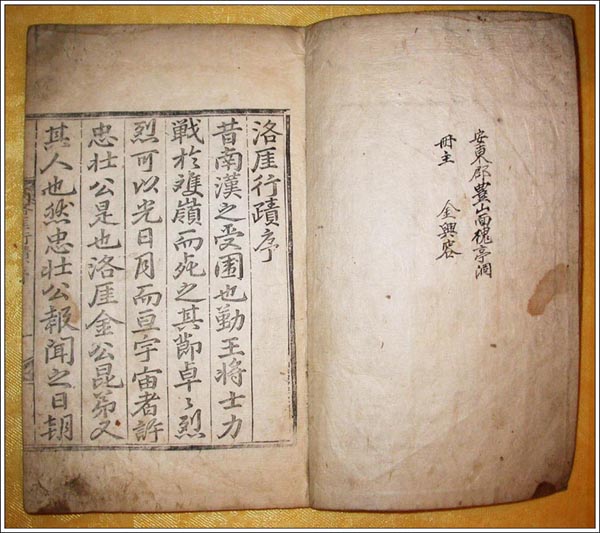 安東郡豊山面槐亭洞
冊主 金興容
洛厓行蹟序
昔南漢之受圍也勤王将士力
戰於雙嶺而死之其節卓〻烈
烈可以光日月而亘宇宙者許
忠壯公是也洛厓金公昆弟又
其人也然忠壯公報聞之日朝